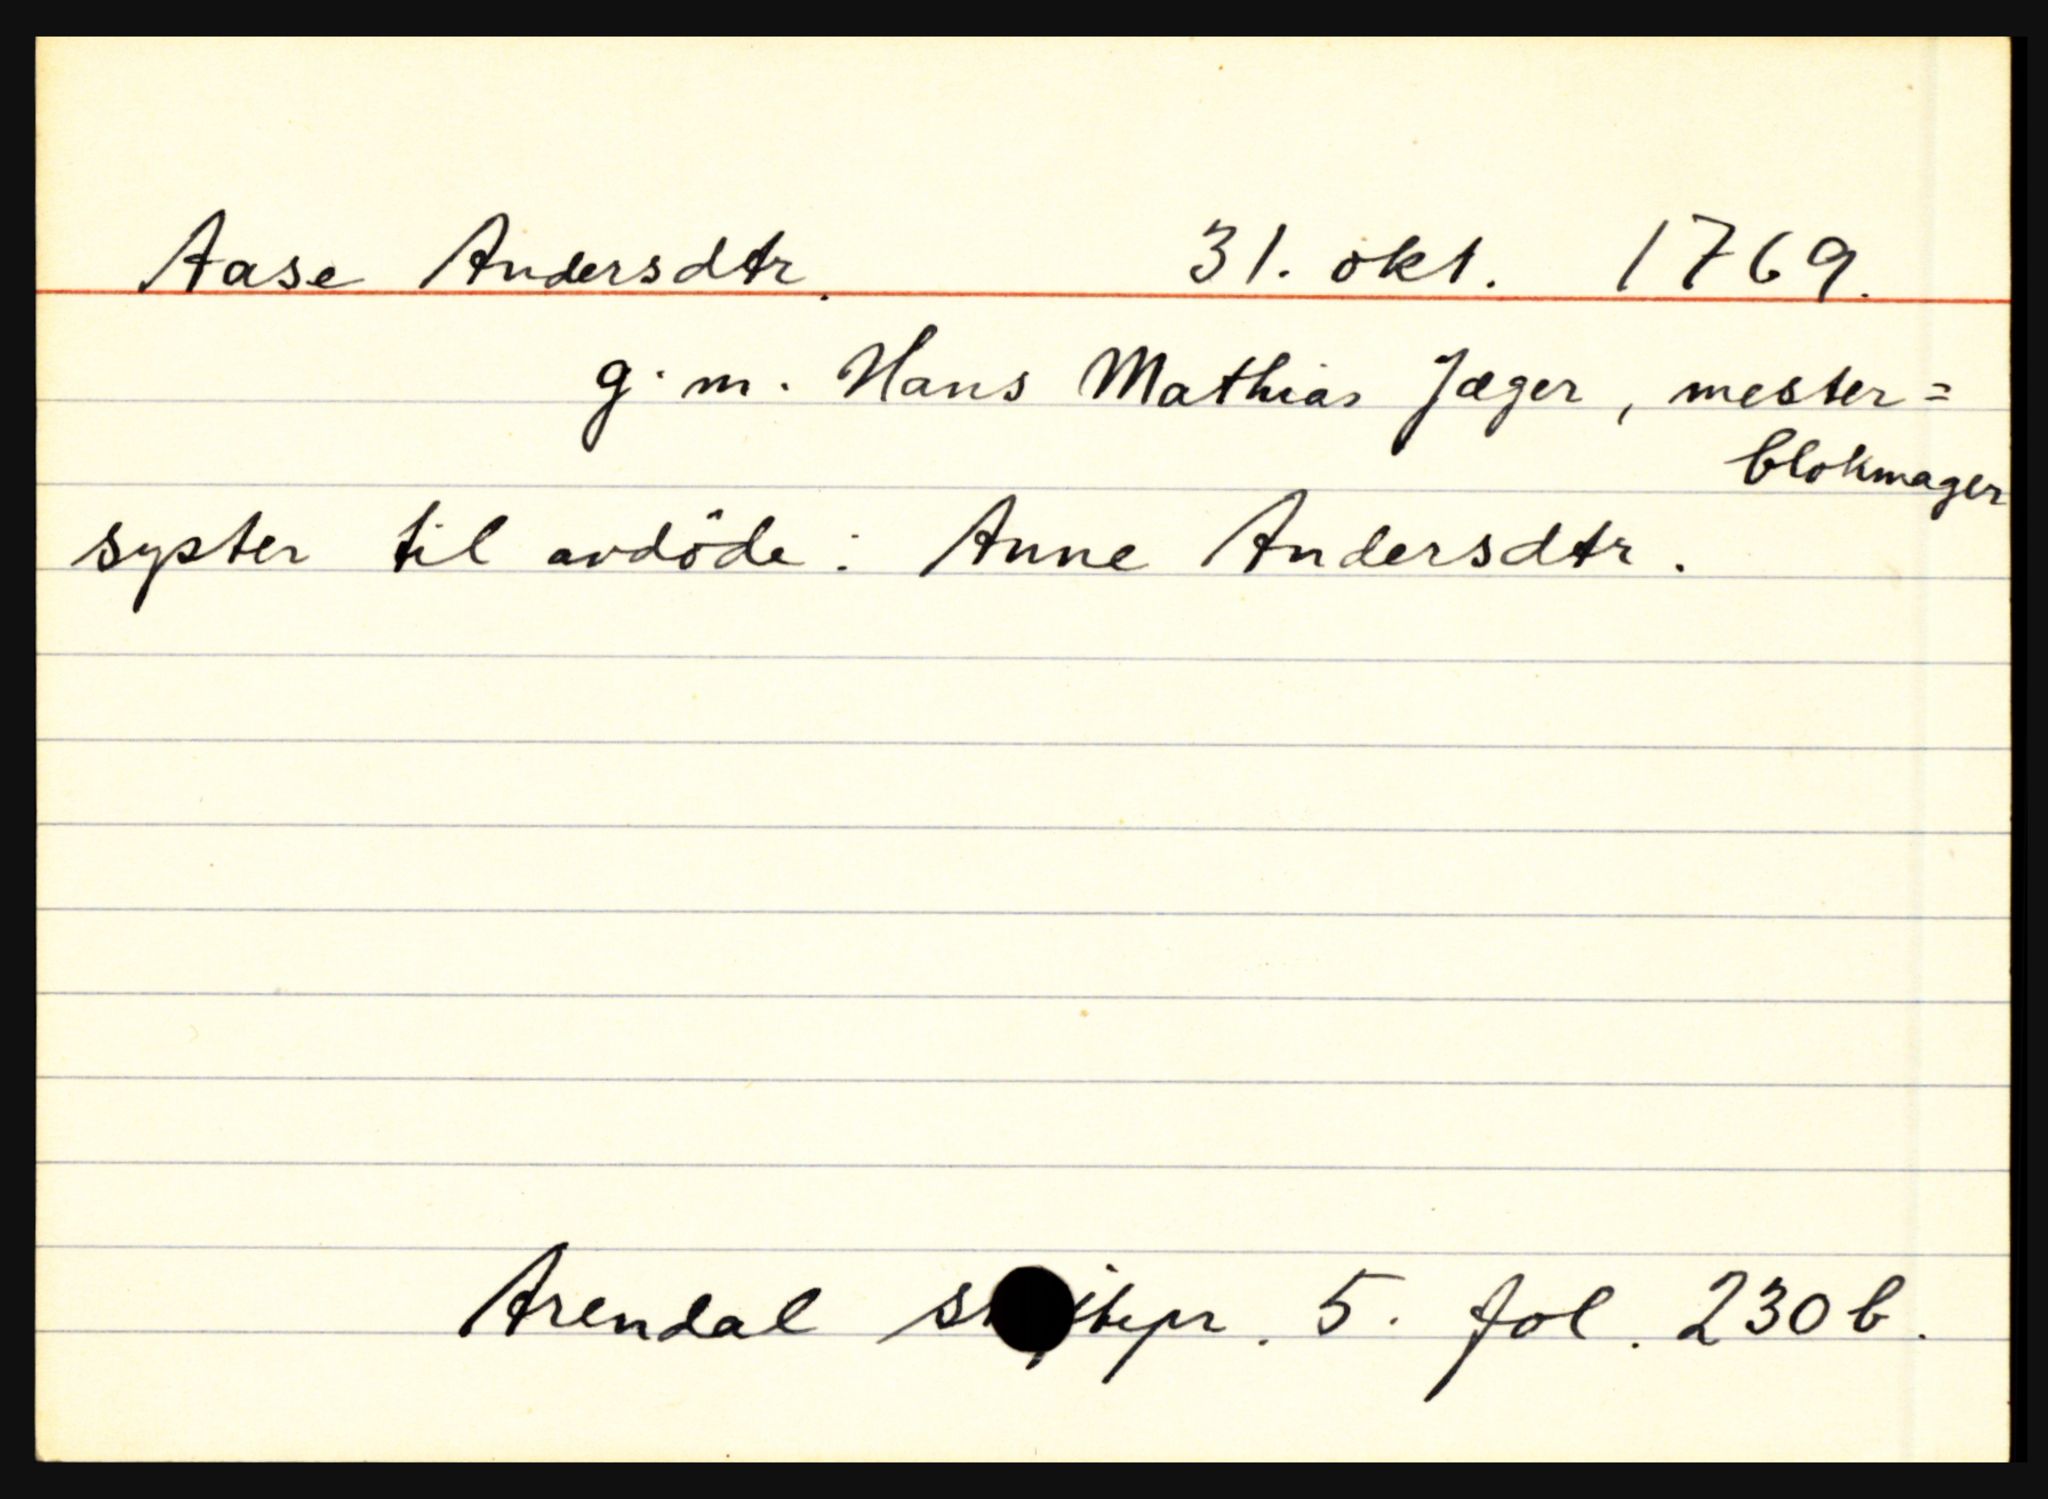 Aase Andersdtr. 31. okt. 1769.
g. m. Hans Mathias Jæger, mester=
blokmager
syster til avdöde: Anne Andersdtr.
Arendal 5. fol. 230 b.